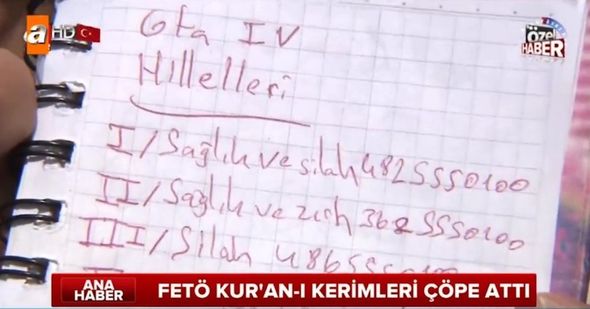 a HD
ÖZEL HABER
Gta IV
Hıllelleri
I/Sağlık ve silah 4825550100
II/Sağlık ve zırh 3625550100
III/Silah 4865550100
ANA HABER
FETÖ KUR'AN-I KERİMLERİ ÇÖPE ATTI